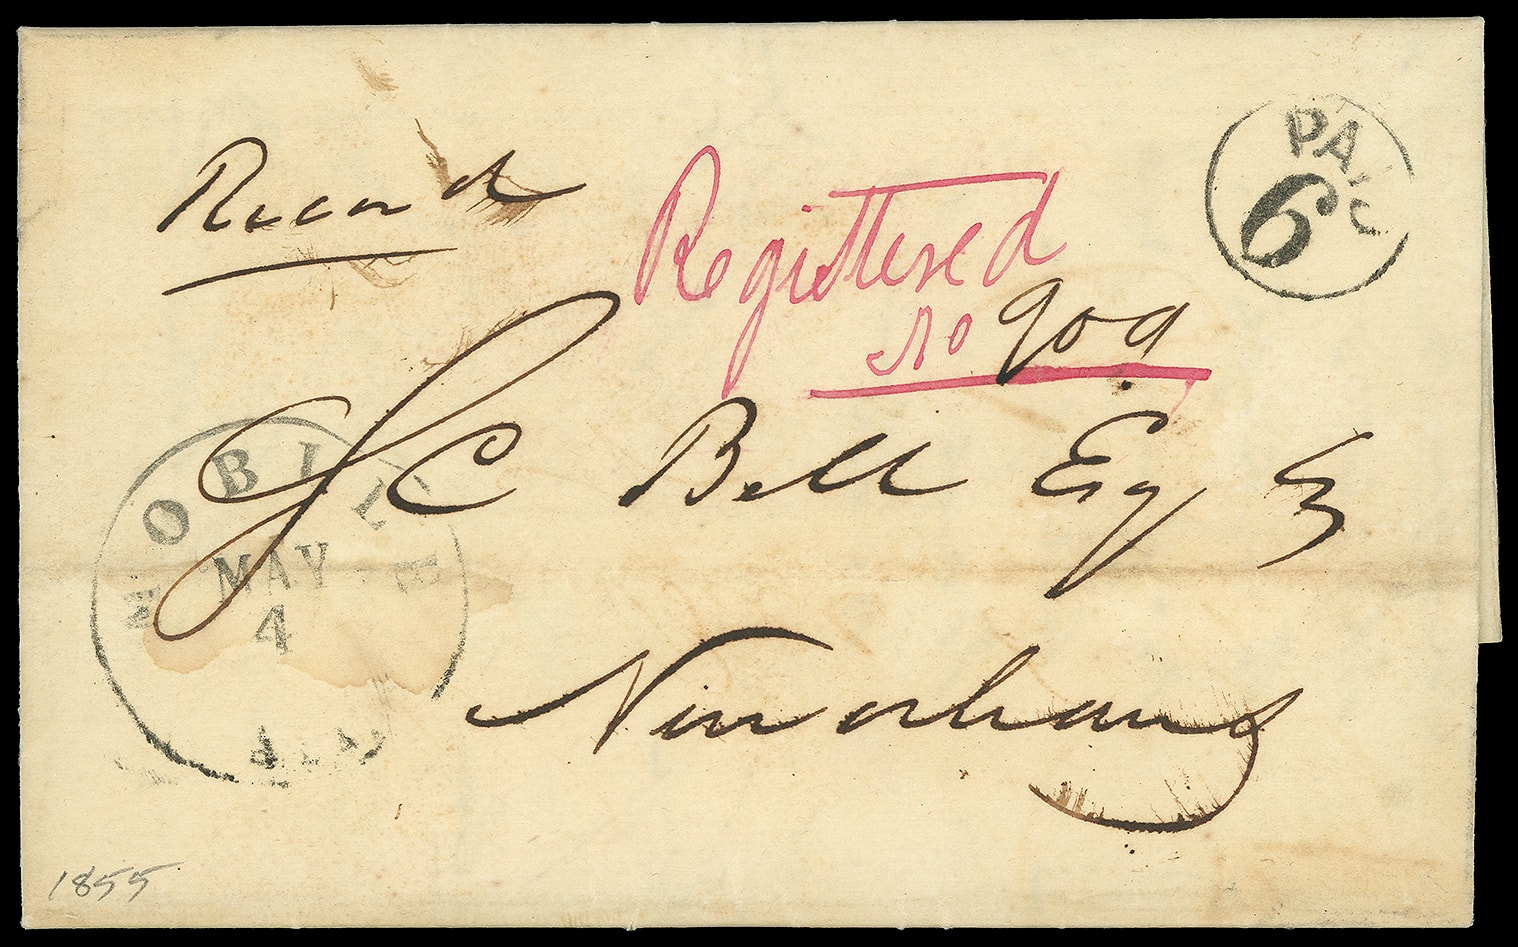 Record
PAID
6
Registered
No 909
J C Bell Esq
MOBILE
MAY
4
ALA
New orleans
1855